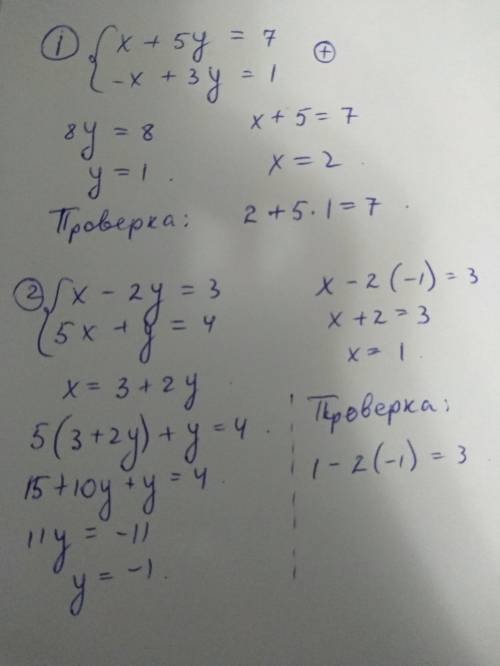 ① { x + 5y = 7
⊕
-x + 3y = 1
8y = 8
y = 1.
x + 5 = 7
x = 2.
Проверка: 2 + 5 · 1 = 7.
② { x - 2y = 3
5x + y = 4
x = 3 + 2y
5(3 + 2y) + y = 4.
15 + 10y + y = 4.
11y = -11
y = -1.
x - 2(-1) = 3
x + 2 = 3
x = 1.
Проверка:
1 - 2(-1) = 3